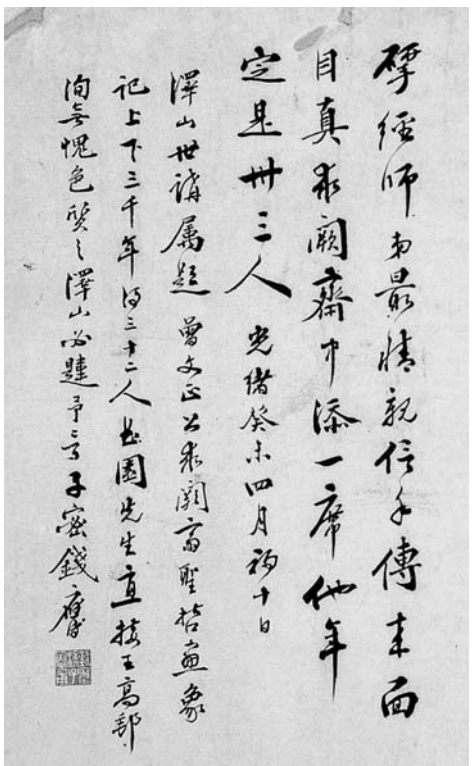 揅經師最情親信手傳來面
目真求闕齋中添一席他年
定是卅三人 光緒癸未四月初十日
澤山世講屬題 曾文正公求闕齋聖哲畫象
記上下三千年得三十二人曲園先生直接王高郵
洵無愧色質之澤山必韙予言 子密錢應